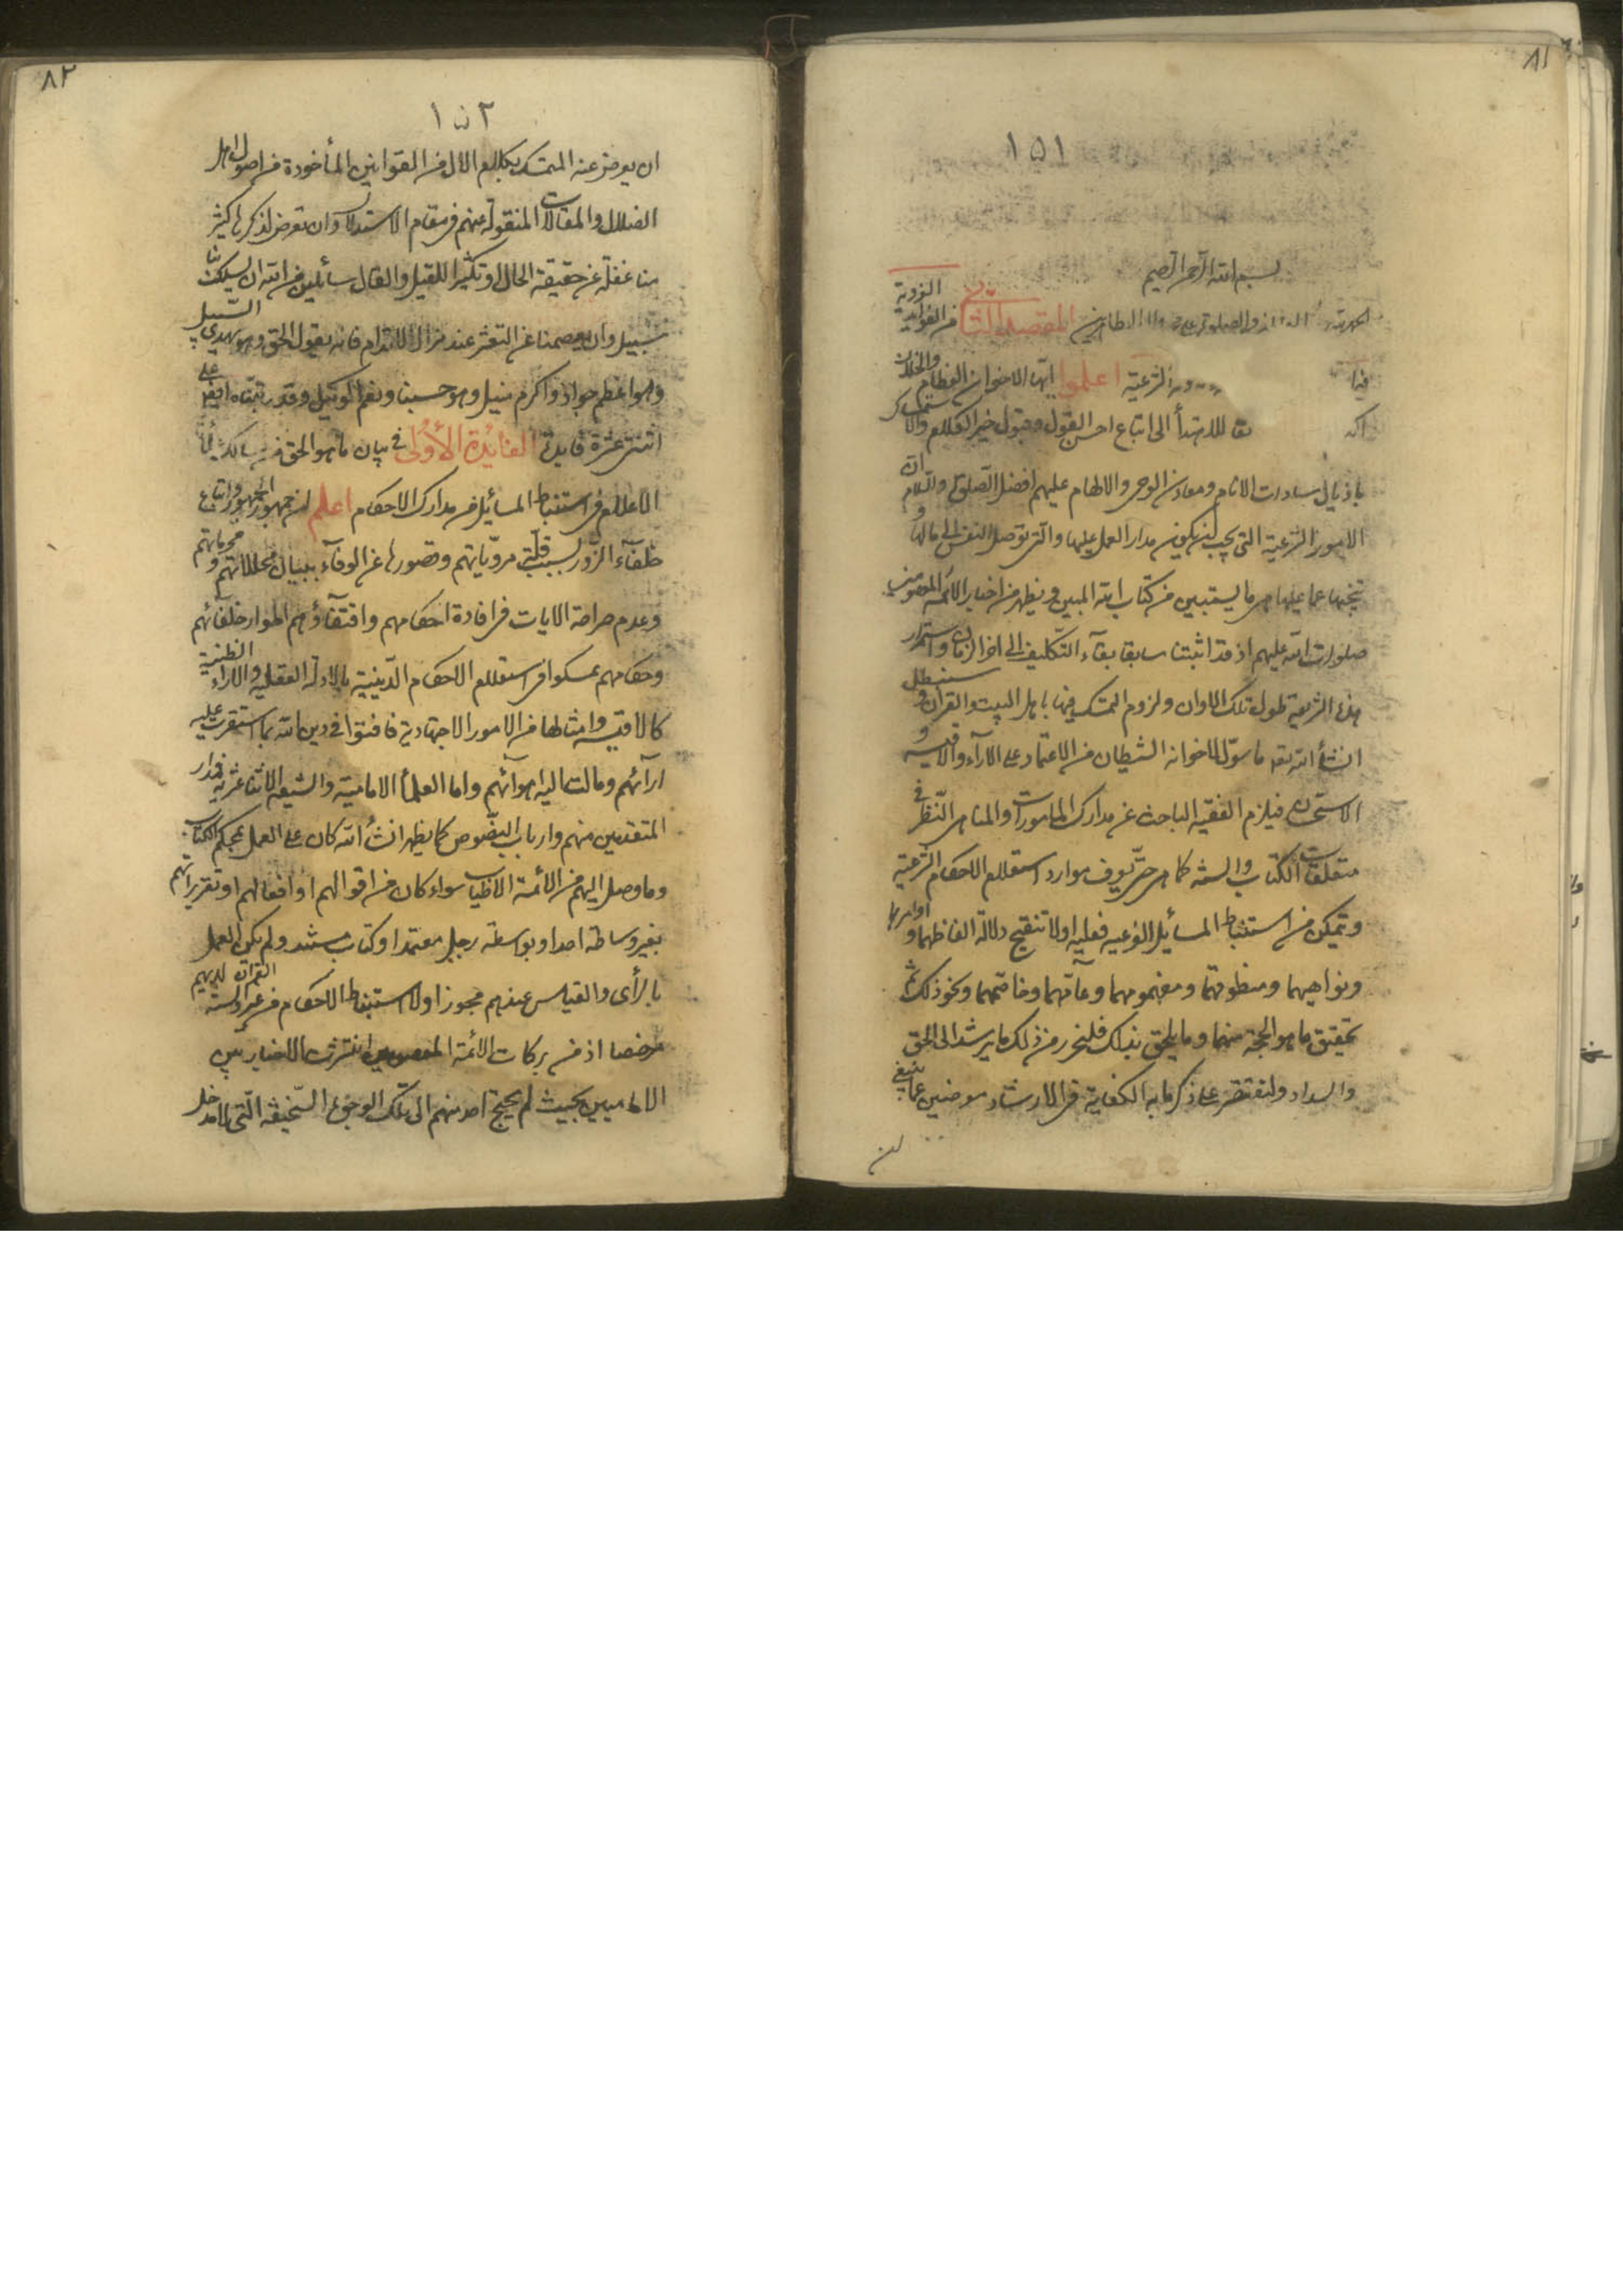 ٨١
١٥١
بسم الله الرحمن الرحيم
الحمد لله والصلوة على واله الطاهرين المقصد الثاني من الفوايد الغروية
فيما الشرعية اعلموا ايها الاخوان العظام والخلان
الى اتباع احسن القول وقبول خير الكلام والاستمساك
باذيال سادات الانام ومعادن الوحى والالهام عليهم افضل الصلوة والسلام ان
الامور الشرعية التى يجب ان يكون مدار العمل عليها والتى توصل النفس الى مالها و
تنجيها عما عليها هى ما يستبين من كتاب الله المبين ويظهر من اخبار الائمة المعصومين
صلوات الله عليهم اذ قد اثبتنا سابقا بقآء التكليف الى اخر الزمان واستمرار
هذه الشريعة طول تلك الاوان ولزوم التمسك فيها باهل البيت والقران و سنبطل
انشأ الله تعه ما سوّل لاخوانه الشيطان من الاعتماد على الآراء والاقيسة و
الاستحسان فيلزم الفقيه الباحث عن مدارك المامورات والمناهى النّظر فى
متعلقات الكتاب والسنة كما هى حتى يعرف موارد استعلام الاحكام الشرعية
ويتمكن من استنباط المسايل الفرعية فعليه اولا تنقيح دلالة الفاظهما و اوامرها
ونواهيهما ومنطوقهما ومفهومهما وعآمّهما وخاصّهما ونحو ذلك ثم
تحقيق ما هو الحجة منهما وما يلحق بذلك فلنحرر من ذلك ما يرشد الى الحق
والسداد ولنقتصر على ذكر ما به الكفاية فى الارشاد معرضين عما ينبغى
ان
٨٢
١٥٢
ان يعرض عنه المتمسك بكلام الال من القوانين المأخودة من اصول اهل
الضلال والمقالات المنقولة عنهم فى مقام الاستدلال وان تعرض لذكرها كثير
منا غفلة عن حقيقة الحال وتكثيرا للقيل والقال سائلين من الله ان يسلك بنا
سبيل وان يعصمنا عن التعثر عند مزال الاقدام فانه يقول الحق وهو يهدى السّبيل
وهو اعظم جواد واكرم منيل وهو حسبنا ونعم الوكيل وقد رتبناه ايضا على
اثنتى عشرة فايدة الفائدة الأولى فى بيان ما هو الحق من مسالك
الاعلام فى استنباط المسائل من مدارك الاحكام اعلم ان جمهور الجمهور و اتباع
خلفآء الزّور لسبب قلّة مرويّاتهم وقصورها عن الوفآء ببيان محللاتهم و محرماتهم
وعدم صراحة الايات فى افادة احكامهم واقتفآؤهم اطوار خلفائهم
وحكامهم تمسكوا فى استعلام الاحكام الدّينية بالادلة العقلية والاراء الظنية
كالاقيسه وامثالها من الامور الاجتهادية فافتوا فى دين الله بما استقرت عليه
ارآئهم ومالت اليه اهوآئهم واما العلمأ الامامية والشيعه الاثنا عشرية فمدار
المتقدمين منهم وارباب النّصوص كما يظهر انشأ الله كان على العمل بمحكم الكتاب
وما وصل اليهم من الائمة الاطياب سواء كان من اقوالهم او افعالهم او تقريراتهم
بغير وساطة احد او بواسطة رجل معتمد او كتاب مستند ولم يكن العمل
بالرأى والقياس عندهم مجوزا ولا استنباط الاحكام من غير السنة القران لديهم
مرخصا اذ من بركات الائمة المعصومين انتشرت الاخبار بين
الاماميين بحيث لم يحتج احد منهم الى تلك الوجوه السّخيفة الّتى لا مدخل